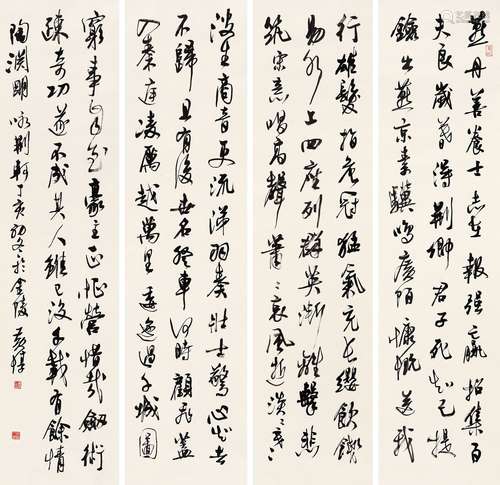 燕丹善養士志在報強嬴招集百
夫良歲暮得荆卿君子死知己提
劍出燕京素驥鳴廣陌慷慨送我
行雄髮指危冠猛氣充長纓飲餞
易水上四座列群英漸離擊悲
筑宋意唱高聲蕭〻哀風逝淡〻寒
波生商音更流涕羽奏壯士驚心知去
不歸且有後世名登車何時顧飛蓋
入秦庭凌厲越萬里逶迤過千城圖
窮事自至豪主正怔營惜哉劍術
疎奇功遂不成其人雖已沒千載有餘情
陶淵明詠荆軻丁亥初冬於金陵黃惇